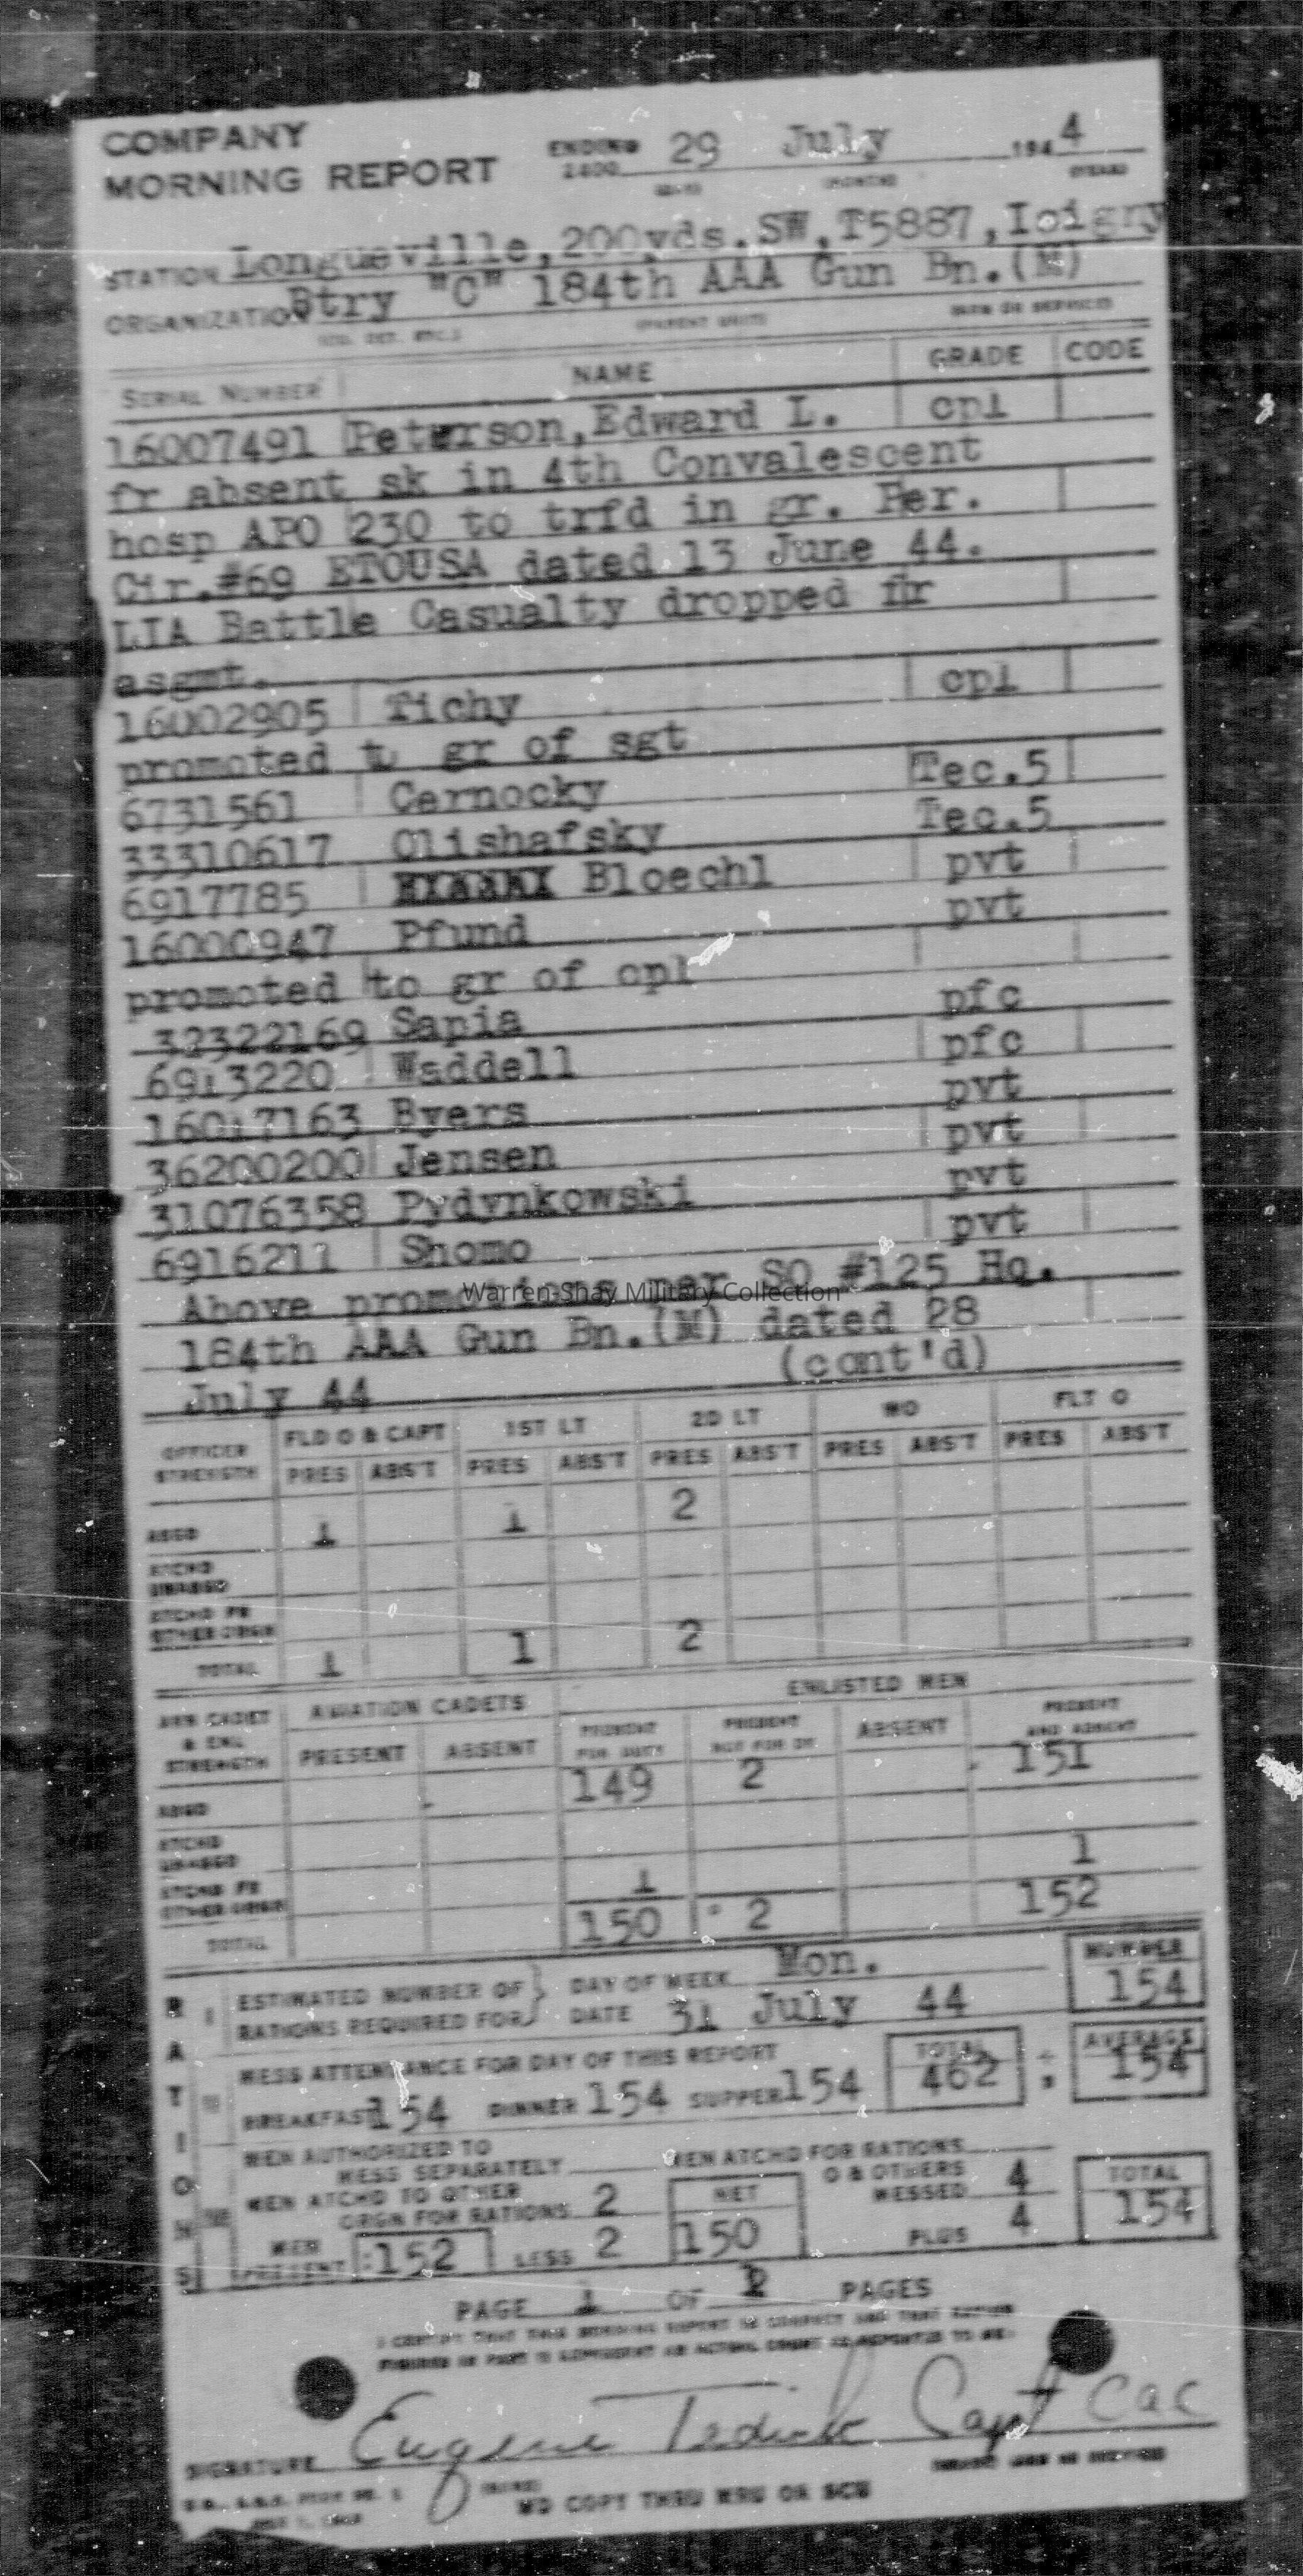 COMPANY
MORNING REPORT ENDING 2400 29 July 1944
STATION Longueville,200yds.SW,T5887,Isigny
ORGANIZATION Btry "C" 184th AAA Gun Bn.(M)
SERIAL NUMBER NAME GRADE CODE
16007491 Peterson,Edward L. cpl
fr absent sk in 4th Convalescent
hosp APO 230 to trfd in gr. Per.
Cir.#69 ETOUSA dated 13 June 44.
LIA Battle Casualty dropped fr
asgmt.
16002905 Tichy cpl
promoted to gr of sgt
6731561 Cernocky Tec.5
33310617 Olishafsky Tec.5
6917785 Bloechl pvt
16000947 Pfund pvt
promoted to gr of cpl
32322169 Sapia pfc
6913220 Waddell pfc
16017163 Byers pvt
36200200 Jensen pvt
31076358 Pydynkowski pvt
6916211 Shomo pvt
Above promotions per SO #125 Hq.
Warren-Shay Military Collection
184th AAA Gun Bn.(M) dated 28
July 44 (cont'd)
OFFICER STRENGTH FLD O & CAPT 1ST LT 2D LT WO FLT O
PRES ABS'T PRES ABS'T PRES ABS'T PRES ABS'T PRES ABS'T
ASGD 1 1 2
ATCHD UNASGD
ATCHD FR OTHER ORGN
TOTAL 1 1 2
AVN CADET & ENL STRENGTH AVIATION CADETS ENLISTED MEN
PRESENT ABSENT PRESENT FOR DUTY PRESENT NOT FOR DY ABSENT PRESENT AND ABSENT
ASGD 149 2 151
ATCHD UNASGD
ATCHD FR OTHER ORGN 1 1
TOTAL 150 2 152
RATIONS
ESTIMATED NUMBER OF RATIONS REQUIRED FOR DAY OF WEEK Mon. NUMBER
DATE 31 July 44 154
MESS ATTENDANCE FOR DAY OF THIS REPORT TOTAL AVERAGE
BREAKFAST 154 DINNER 154 SUPPER 154 462 ÷ 3 154
MEN AUTHORIZED TO MESS SEPARATELY MEN ATCHD FOR RATIONS
MEN ATCHD TO OTHER ORGN FOR RATIONS 2 NET O & OTHERS MESSED 4 TOTAL
MEN PRESENT 152 LESS 2 150 PLUS 4 154
PAGE 1 OF 2 PAGES
I CERTIFY THAT THIS MORNING REPORT IS CORRECT AND THAT RATION
FIGURES IN PART III REPRESENT AN ACTUAL COUNT AS REPORTED TO ME:
SIGNATURE Eugene Capt CAC
WD COPY THRU MRU OR SCU